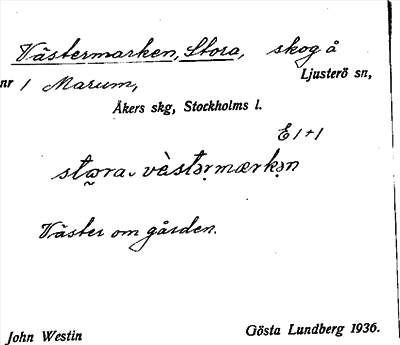 Västermarken, Stora, skog å
nr 1 Marum, Ljusterö sn,
Åkers skg, Stockholms l.
E1+1
Väster om gården.
John Westin Gösta Lundberg 1936.